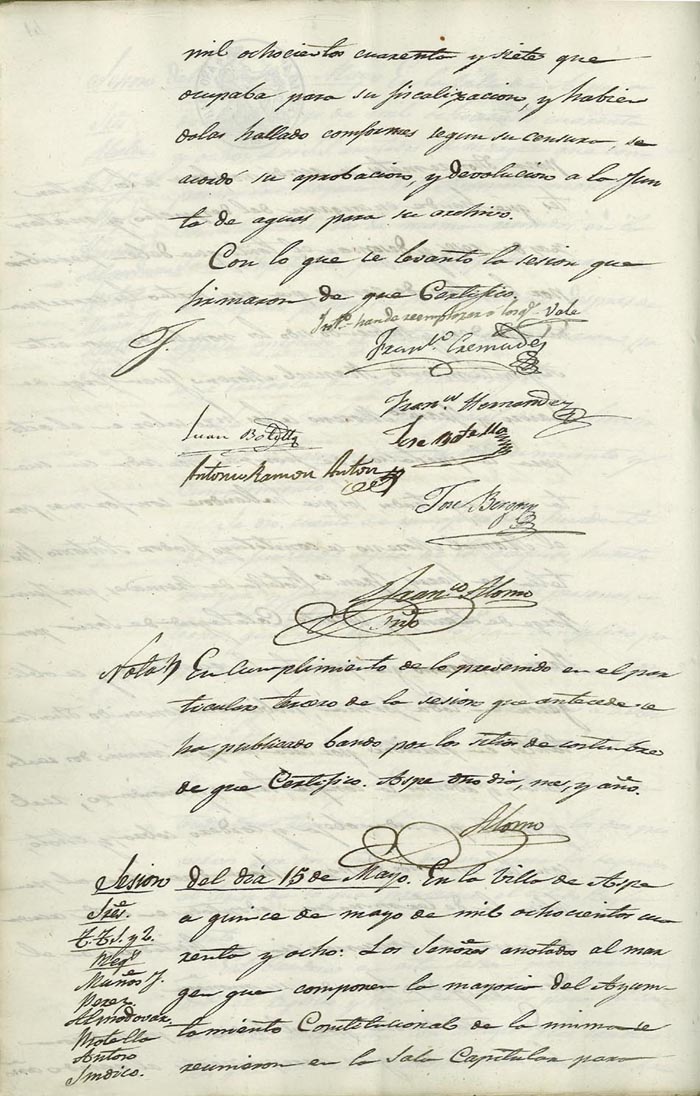 mil ochocientos cuarenta y siete que
ocupaba para su fiscalizacion, y habien
dolas hallado comformes segun su censura, se
acordó su aprobacion, y devolucion a la Jun
ta de aguas para su archivo.
Con lo que se levanto la sesion que
firmaron de que Certifico.
han de reemplazar a Vale
Fran.co Cremades
Fran.co Hernandez
Juan Botella
Jose Botella
Antonio Ramon Anton
Jose
Fran.co Alorno
Srio
Nota En cumplimiento de lo prevenido en el par
ticular tercero de la sesion que antecede se
ha publicado bando por los sitios de costumbre
de que Certifico. Aspe dia, mes, y año.
Alorno
Sesion del dia 15 de Mayo. En la Villa de Aspe
a quince de mayo de mil ochocientos cua
renta y ocho: Los Señores anotados al mar
gen que componen la mayoria del Ayun-
tamiento Constitucional de la misma se
reunieron en la Sala Capitular para
Sres.
T. T. 1. y 2.
Reg.s
Muños J.
Perez
Almodovar
Botella
Anton
Sindico.